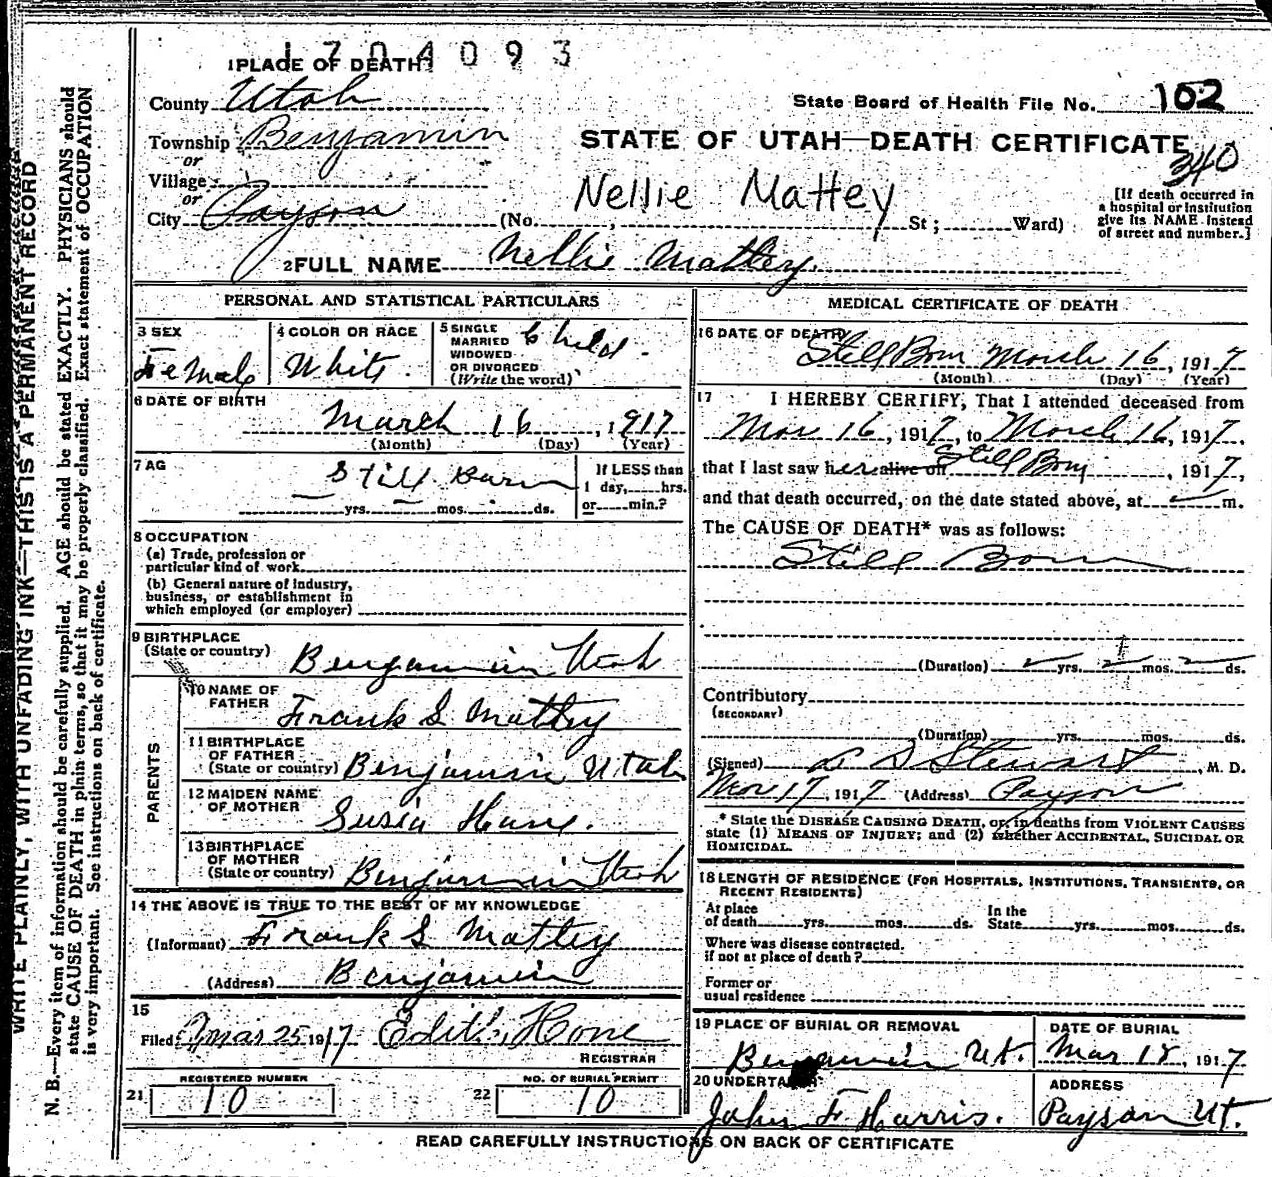 1704093
1 PLACE OF DEATH
County Utah
State Board of Health File No. 102
Township Benjamin
STATE OF UTAH—DEATH CERTIFICATE
340
or
Village
or
City Payson (No. , St; Ward)
Nellie Mattey
[If death occurred in a hospital or institution give its NAME instead of street and number.]
2 FULL NAME Nellie Mattey
PERSONAL AND STATISTICAL PARTICULARS
3 SEX Female
4 COLOR OR RACE White
5 SINGLE MARRIED WIDOWED OR DIVORCED (Write the word) Child
6 DATE OF BIRTH
March 16, 1917
(Month) (Day) (Year)
7 AG Still Born
yrs. mos. ds.
If LESS than 1 day, hrs. or min.?
8 OCCUPATION
(a) Trade, profession or particular kind of work
(b) General nature of industry, business, or establishment in which employed (or employer)
9 BIRTHPLACE
(State or country) Benjamin Utah
PARENTS
10 NAME OF FATHER Frank S Mattey
11 BIRTHPLACE OF FATHER
(State or country) Benjamin Utah
12 MAIDEN NAME OF MOTHER
13 BIRTHPLACE OF MOTHER
(State or country) Benjamin Utah
14 THE ABOVE IS TRUE TO THE BEST OF MY KNOWLEDGE
(Informant) Frank S Mattey
(Address) Benjamin
15
Filed Mar 25 1917 Edith Hone
REGISTRAR
REGISTERED NUMBER
21 10
NO. OF BURIAL PERMIT
22 10
MEDICAL CERTIFICATE OF DEATH
16 DATE OF DEATH
Still Born March 16, 1917
(Month) (Day) (Year)
17 I HEREBY CERTIFY, That I attended deceased from
Mar 16, 1917, to March 16, 1917,
that I last saw her alive on Still Born, 1917,
and that death occurred, on the date stated above, at m.
The CAUSE OF DEATH* was as follows:
Still Born
(Duration) yrs. mos. ds.
Contributory
(SECONDARY)
(Duration) yrs. mos. ds.
(Signed) Stewart, M. D.
Mar 17, 1917 (Address) Payson
* State the DISEASE CAUSING DEATH, or, in deaths from VIOLENT CAUSES
state (1) MEANS OF INJURY; and (2) whether ACCIDENTAL, SUICIDAL OR
HOMICIDAL.
18 LENGTH OF RESIDENCE (FOR HOSPITALS, INSTITUTIONS, TRANSIENTS, OR
RECENT RESIDENTS)
At place of death yrs. mos. ds. In the State yrs. mos. ds.
Where was disease contracted.
if not at place of death?
Former or
usual residence
19 PLACE OF BURIAL OR REMOVAL
Benjamin Ut.
DATE OF BURIAL
Mar 18, 1917
20 UNDERTAKER
John F Harris.
ADDRESS
Payson Ut.
READ CAREFULLY INSTRUCTIONS ON BACK OF CERTIFICATE
WRITE PLAINLY, WITH UNFADING INK—THIS IS A PERMANENT RECORD
N. B.—Every item of information should be carefully supplied. AGE should be stated EXACTLY. PHYSICIANS should
state CAUSE OF DEATH in plain terms, so that it may be properly classified. Exact statement of OCCUPATION
is very important. See instructions on back of certificate.